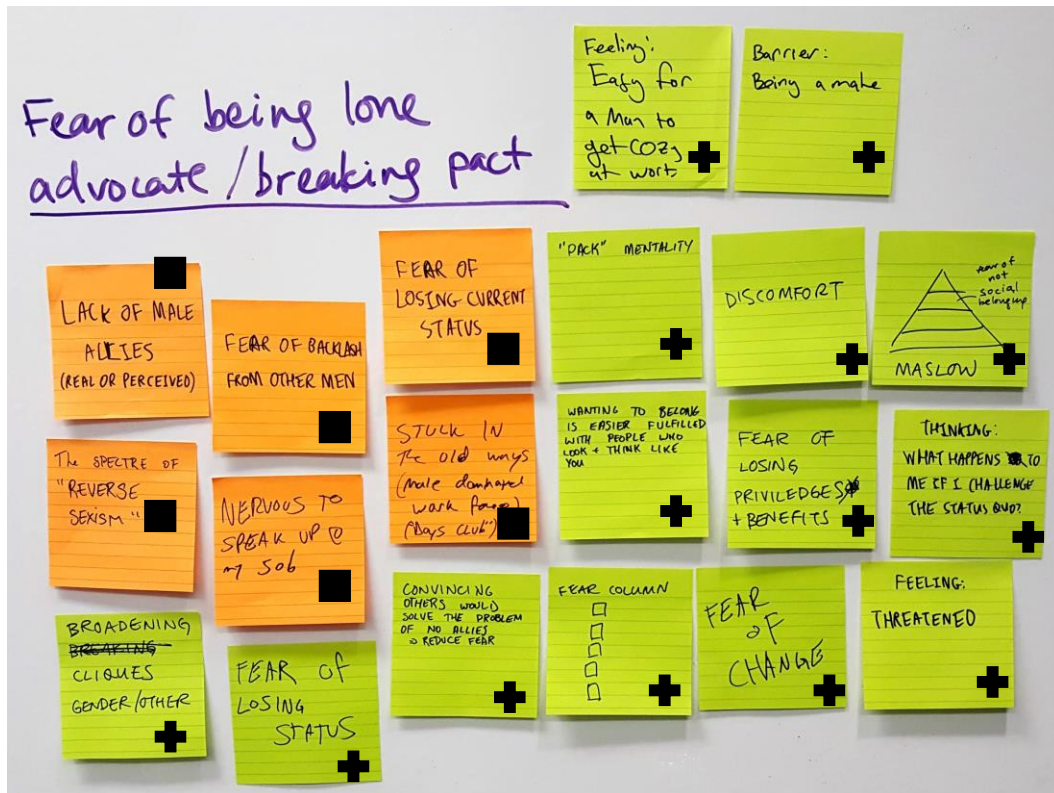 Fear of being lone
advocate/breaking pact
Feeling:
Easy for
a Man to
get Cozy
at work
Barrier:
Being a male
LACK OF MALE
ALLIES
(REAL OR PERCEIVED)
FEAR OF BACKLASH
FROM OTHER MEN
FEAR OF
LOSING CURRENT
STATUS
"PACK" MENTALITY
DISCOMFORT
fear of
not
social
belonging
MASLOW
The SPECTRE OF
"REVERSE
SEXISM"
NERVOUS TO
SPEAK UP @
my JOB
STUCK IN
The old ways
(male dominated
work force
("Boys CLUB")
WANTING TO BELONG
IS EASIER FULFILLED
WITH PEOPLE WHO
LOOK + THINK LIKE
YOU
FEAR OF
LOSING
PRIVILEDGES
+ BENEFITS
THINKING:
WHAT HAPPENS TO
ME IF I CHALLENGE
THE STATUS QUO?
BROADENING
BREAKING
CLIQUES
GENDER/OTHER
FEAR OF
LOSING
STATUS
CONVINCING
OTHERS WOULD
SOLVE THE PROBLEM
OF NO ALLIES
REDUCE FEAR
FEAR COLUMN
FEAR
OF
CHANGE
FEELING:
THREATENED